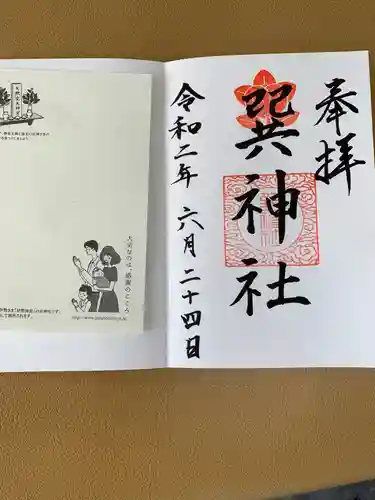 奉拝
巽神社
令和二年 六月二十四日
大切なのは、感謝のこころ